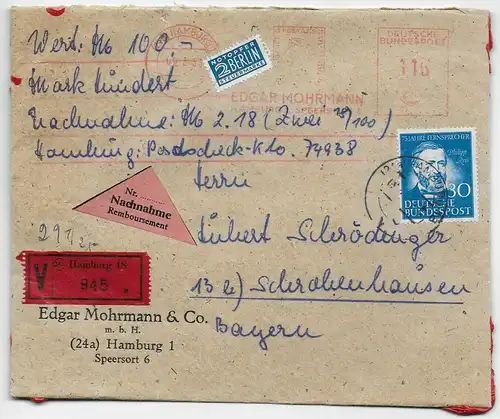 Wert: M 100,-
Mark hundert
Nachnahme: M 2.18 (Zwei 18/100)
Hamburg: Postscheck-Kto. 74938
HAMBURG
NOTOPFER
2 BERLIN
STEUERMARKE
EDGAR MOHRMANN
DEUTSCHE
BUNDESPOST
75 JAHRE FERNSPRECHER
Philipp Reis
30
DEUTSCHE
BUNDESPOST
Herrn
Nr.
Nachnahme
Remboursement
Schrödinger
13b) Schrobenhausen
Bayern
291
V
Hamburg 48
945
Edgar Mohrmann & Co.
m. b. H.
(24a) Hamburg 1
Speersort 6